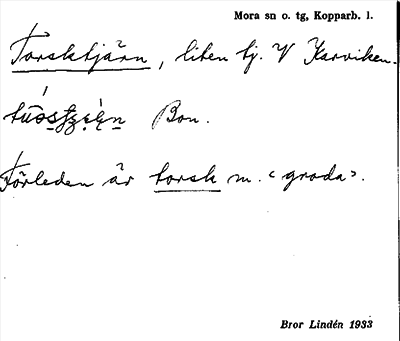 Mora sn o. tg, Kopparb. l.
Torsktjärn, liten tj. V Karviken.
Bon.
Förleden är torsk m. "groda".
Bror Lindén 1933